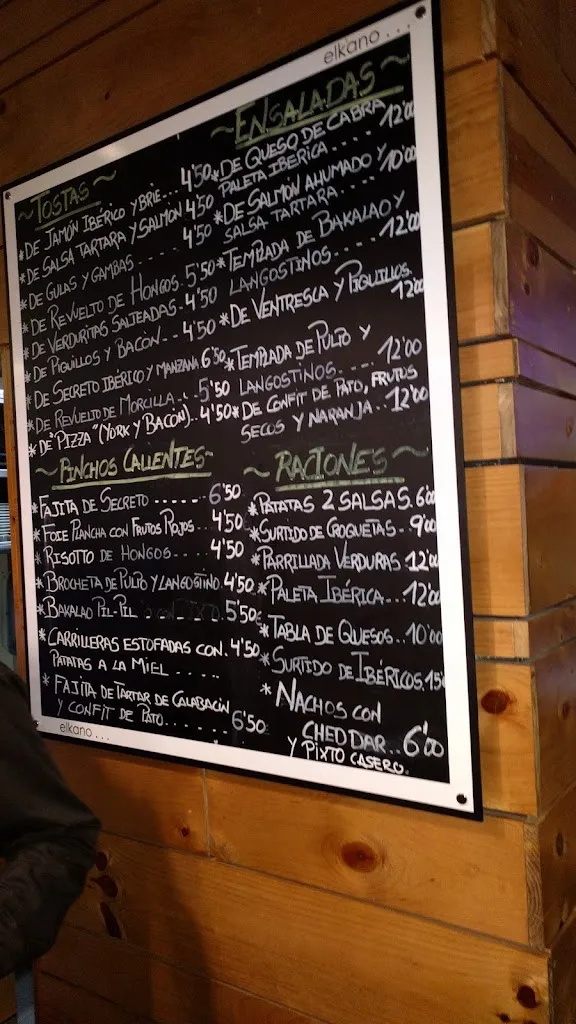 elkano...
~TOSTAS~
*DE JAMÓN IBÉRICO Y BRIE... 4'50
*DE SALSA TARTARA Y SALMON 4'50
*DE GULAS Y GAMBAS 4'50
*DE REVUELTO DE HONGOS. 5'50
*DE VERDURITAS SALTEADAS- 4'50
*DE PIQUILLOS Y BACÓN... 4'50
*DE SECRETO IBÉRICO Y MANZANA 6'50
*DE REVUELTO DE MORCILLA.. 5'50
*DE "PIZZA" (YORK Y BACÓN).. 4'50
~ENSALADAS~
*DE QUESO DE CABRA
PALETA IBERICA.... 12'00
*DE SALMON AHUMADO Y
SALSA TARTARA.... 10'00
*TEMPLADA DE BAKALAO Y
LANGOSTINOS..... 12'00
*DE VENTRESCA Y PIQUILLOS
12'00
*TEMPLADA DE PULPO Y
LANGOSTINOS.... 12'00
*DE CONFIT DE PATO, FRUTOS
SECOS Y NARANJA.. 12'00
~PINCHOS CALIENTES~
*FAJITA DE SECRETO ..... 6'50
*FOIE PLANCHA CON FRUTOS ROJOS... 4'50
*RISOTTO DE HONGOS.... 4'50
*BROCHETA DE PULPO Y LANGOSTINO. 4'50
*BAKALAO PIL-PIL ..... 5'50
*CARRILLERAS ESTOFADAS CON. 4'50
PATATAS A LA MIEL .....
*FAJITA DE TARTAR DE CALABACIN
Y CONFIT DE PATO...... 6'50
~RACIONES~
*PATATAS 2 SALSAS. 6'00
*SURTIDO DE CROQUETAS.. 9'00
*PARRILLADA VERDURAS 12'00
*PALETA IBÉRICA... 12'00
*TABLA DE QUESOS.. 10'00
*SURTIDO DE IBÉRICOS. 15'
*NACHOS CON
CHEDDAR.. 6'00
Y PIXTO CASERO.
elkano...